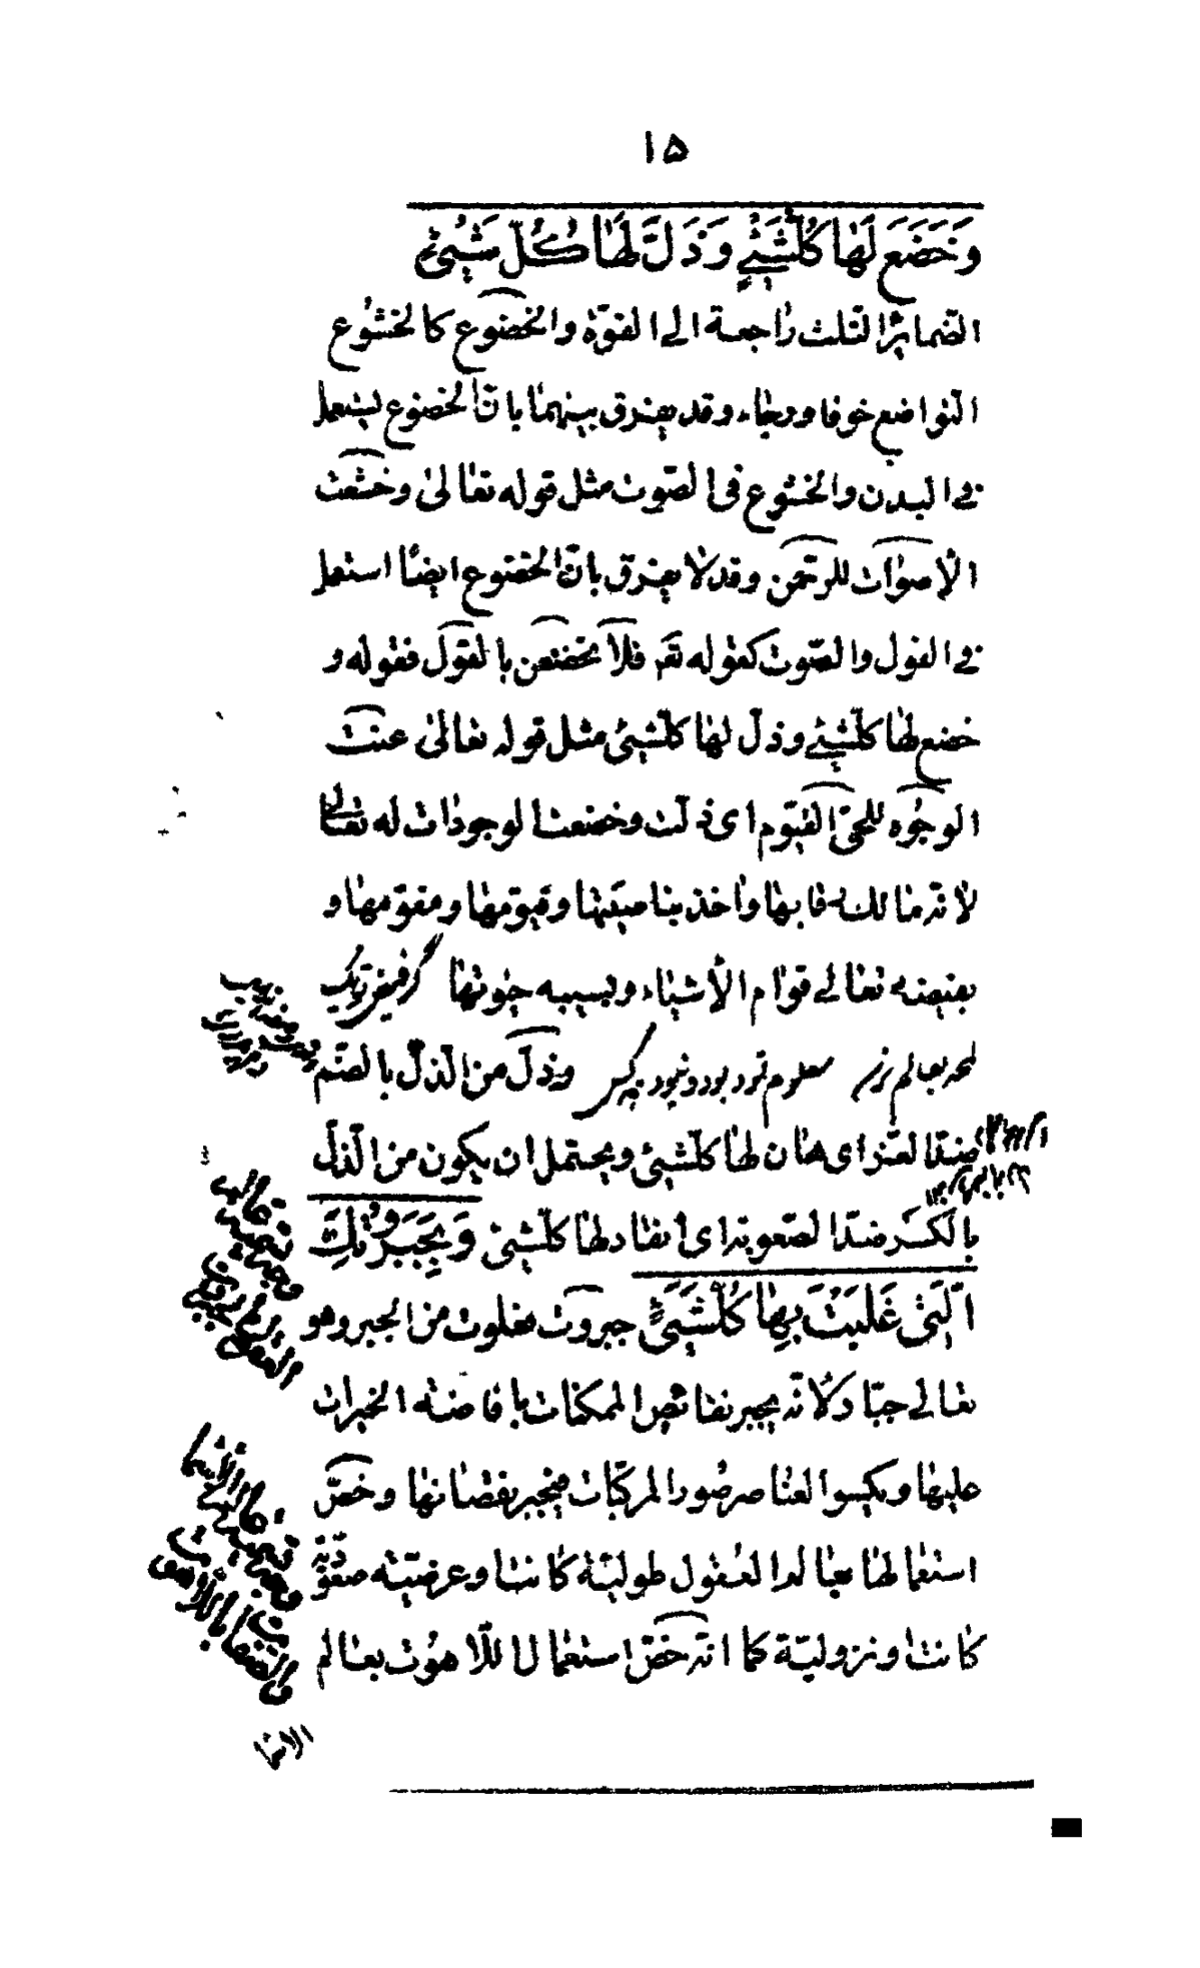 ۱۵
وَخَضَعَ لَهٰا كُلُّشَیْءٍ وَذَلَّ لَهٰا كُلُّ شَیْءٍ
الضمائر الثلث راجعة الی القوّة والخضوع كالخشوع
التواضع خوفا ورجاء وقد یفرق بینهما بانّ الخضوع یستعمل
فی البدن والخشوع فی الصّوت مثل قوله تعالیٰ وخشعت
الأصوات للرحمن وقد لا یفرق بانّ الخضوع ایضاً استعمل
فی القول والصّوت كقوله تع فلا تخضعن بالقول فقوله و
خضع لها كلّشیء وذلّ لها كلّشیء مثل قوله تعالیٰ عنت
الوجوه للحیّ القیّوم ای ذلّت وخضعت الوجودات له تعالی
لانّه مالك رقابها واخذ بناصیتها وقیّومها ومقوّمها و
بفیضه تعالی قوام الأشیاء وبسیبه حیٰوتها گر فیض تویك
لمحه بعالم نرسد معلوم شود بود ونبود همه كس وذلّ من الذلّ بالضّم
ضدّ العزّ ای هان لها كلّشیء ویحتمل ان یكون من الذلّ
بالكسر ضدّ الصّعوبة ای انقاد لها كلّشیء وَبِجَبَرُوتِكَ
الَّتی غَلَبْتَ بِهٰا كُلَّشَیْءٍ جبروت مغلوت من الجبر وهو
تعالی جبّار لانّه یجبر نقائص الممكنات بافاضته الخیرات
علیها ویكسوا العناصر صُور المركّبات فیجبر نقصانها وخصّ
استعمالها بعالم العُقول طولیّة كانت او عرضیّة صعودیّة
كانت او نزولیّة كما انّه خصّ استعمال اللّاهوت بعالم
الاسماء